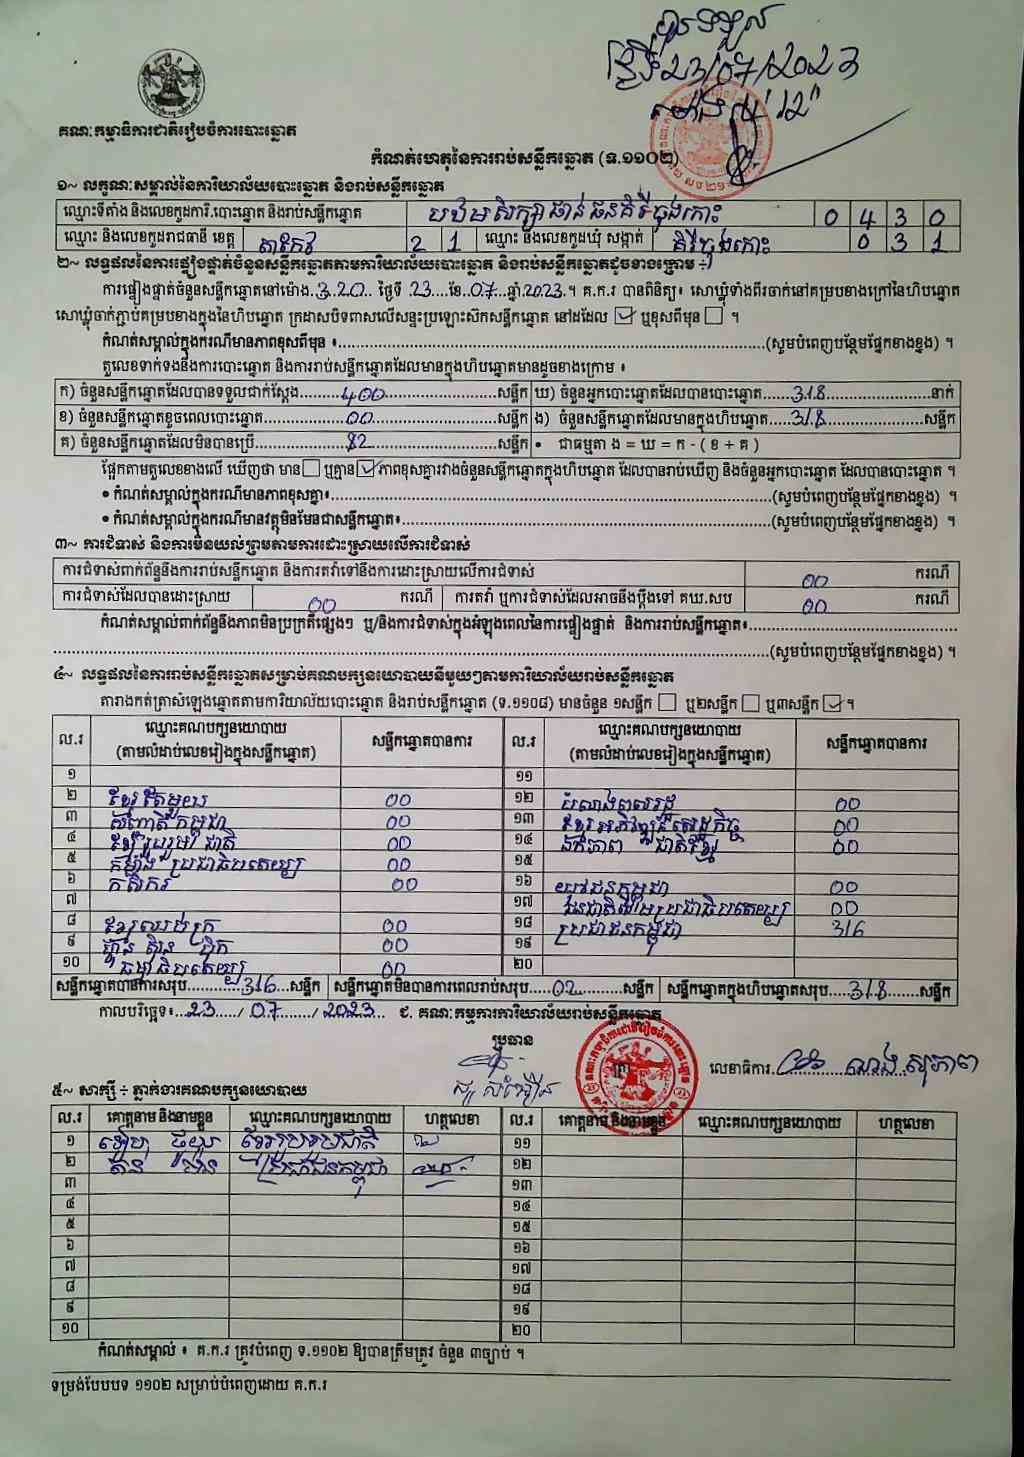 បានទទួល
ថ្ងៃទី23/07/2023
ម៉ោង
គណៈកម្មាធិការជាតិរៀបចំការបោះឆ្នោត
កំណត់ហេតុនៃការរាប់សន្លឹកឆ្នោត (ទ.១១០២)
១~ លក្ខណៈសម្គាល់នៃការិយាល័យបោះឆ្នោត និងរាប់សន្លឹកឆ្នោត
ឈ្មោះទីតាំង និងលេខកូដការិ.បោះឆ្នោត និងរាប់សន្លឹកឆ្នោត បឋមសិក្សា ជាន់ ផន គិរីចុងកោះ 0 4 3 0
ឈ្មោះ និងលេខកូដរាជធានី ខេត្ត តាកែវ 2 1 ឈ្មោះ និងលេខកូដឃុំ សង្កាត់ គិរីចុងកោះ 0 3 1
២~ លទ្ធផលនៃការផ្ទៀងផ្ទាត់ចំនួនសន្លឹកឆ្នោតតាមការិយាល័យបោះឆ្នោត និងរាប់សន្លឹកឆ្នោតដូចខាងក្រោម ÷
ការផ្ទៀងផ្ទាត់ចំនួនសន្លឹកឆ្នោតនៅម៉ោង.3.20.. ថ្ងៃទី 23....ខែ.07...ឆ្នាំ.2023.។ គ.ក.រ បានពិនិត្យ៖ សោឃ្លុំទាំងពីរចាក់នៅគម្របខាងក្រៅនៃហិបឆ្នោត
សោឃ្លុំចាក់ភ្ជាប់គម្របខាងក្នុងនៃហិបឆ្នោត ក្រដាសបិទពាសលើសន្ទះប្រឡោះស៊កសន្លឹកឆ្នោត នៅដដែល ☑ ឬខុសពីមុន ☐ ។
កំណត់សម្គាល់ក្នុងករណីមានភាពខុសពីមុន ៖..........(សូមបំពេញបន្ថែមផ្នែកខាងខ្នង) ។
តួលេខទាក់ទងនឹងការបោះឆ្នោត និងការរាប់សន្លឹកឆ្នោតដែលមានក្នុងហិបឆ្នោតមានដូចខាងក្រោម ៖
ក) ចំនួនសន្លឹកឆ្នោតដែលបានទទួលជាក់ស្តែង..........400..........សន្លឹក ឃ) ចំនួនអ្នកបោះឆ្នោតដែលបានបោះឆ្នោត......318..........នាក់
ខ) ចំនួនសន្លឹកឆ្នោតខូចពេលបោះឆ្នោត..........00..........សន្លឹក ង) ចំនួនសន្លឹកឆ្នោតដែលមានក្នុងហិបឆ្នោត......318..........សន្លឹក
គ) ចំនួនសន្លឹកឆ្នោតដែលមិនបានប្រើ..........82..........សន្លឹក • ជាធម្មតា ង = ឃ = ក - ( ខ + គ )
ផ្អែកតាមតួលេខខាងលើ ឃើញថា មាន ☐ ឬគ្មាន ☑ ភាពខុសគ្នារវាងចំនួនសន្លឹកឆ្នោតក្នុងហិបឆ្នោត ដែលបានរាប់ឃើញ និងចំនួនអ្នកបោះឆ្នោត ដែលបានបោះឆ្នោត ។
• កំណត់សម្គាល់ក្នុងករណីមានភាពខុសគ្នា៖..........(សូមបំពេញបន្ថែមផ្នែកខាងខ្នង) ។
• កំណត់សម្គាល់ក្នុងករណីមានវត្ថុមិនមែនជាសន្លឹកឆ្នោត៖..........(សូមបំពេញបន្ថែមផ្នែកខាងខ្នង) ។
៣~ ការជំទាស់ និងការមិនយល់ព្រមតាមការដោះស្រាយលើការជំទាស់
ការជំទាស់ពាក់ព័ន្ធនឹងការរាប់សន្លឹកឆ្នោត និងការតវ៉ាទៅនឹងការដោះស្រាយលើការជំទាស់ 00 ករណី
ការជំទាស់ដែលបានដោះស្រាយ 00 ករណី ការតវ៉ា ឬការជំទាស់ដែលអាចនឹងប្តឹងទៅ គឃ.សប 00 ករណី
កំណត់សម្គាល់ពាក់ព័ន្ធនឹងភាពមិនប្រក្រតីផ្សេងៗ ឬ/និងការជំទាស់ក្នុងអំឡុងពេលនៃការផ្ទៀងផ្ទាត់ និងការរាប់សន្លឹកឆ្នោត៖..........
..........(សូមបំពេញបន្ថែមផ្នែកខាងខ្នង) ។
៤~ លទ្ធផលនៃការរាប់សន្លឹកឆ្នោតសម្រាប់គណបក្សនយោបាយនីមួយៗតាមការិយាល័យរាប់សន្លឹកឆ្នោត
តារាងកត់ត្រាសំឡេងឆ្នោតតាមការិយាល័យបោះឆ្នោត និងរាប់សន្លឹកឆ្នោត (ទ.១១០៨) មានចំនួន ១សន្លឹក ☐ ឬ២សន្លឹក ☐ ឬ៣សន្លឹក ☑ ។
ល.រ ឈ្មោះគណបក្សនយោបាយ (តាមលំដាប់លេខរៀងក្នុងសន្លឹកឆ្នោត) សន្លឹកឆ្នោតបានការ ល.រ ឈ្មោះគណបក្សនយោបាយ (តាមលំដាប់លេខរៀងក្នុងសន្លឹកឆ្នោត) សន្លឹកឆ្នោតបានការ
១ ១១
២ ខ្មែរតែមួយ 00 ១២ បំណងពលរដ្ឋ 00
៣ សញ្ជាតិកម្ពុជា 00 ១៣ ខ្មែរអភិវឌ្ឍន៍សេដ្ឋកិច្ច 00
៤ ខ្មែររួបរួមជាតិ 00 ១៤ ឯកភាពជាតិខ្មែរ 00
៥ កម្លាំងប្រជាធិបតេយ្យ 00 ១៥
៦ កសិករ 00 ១៦ យុវជនកម្ពុជា 00
៧ ១៧ ជនជាតិដើមប្រជាធិបតេយ្យ 00
៨ ខ្មែរឈប់ក្រ 00 ១៨ ប្រជាជនកម្ពុជា 316
៩ ហ៊្វុនស៊ិនប៉ិច 00 ១៩
១០ ធម្មាធិបតេយ្យ 00 ២០
សន្លឹកឆ្នោតបានការសរុប..........316...សន្លឹក សន្លឹកឆ្នោតមិនបានការពេលរាប់សរុប.....02..........សន្លឹក សន្លឹកឆ្នោតក្នុងហិបឆ្នោតសរុប....318.......សន្លឹក
កាលបរិច្ឆេទ៖..23...../.07......../.2023... ជ. គណៈកម្មការការិយាល័យរាប់សន្លឹកឆ្នោត
ប្រធាន
លេខាធិការ.......... ណង សុភាព
៥~ សាក្សី ÷ ភ្នាក់ងារគណបក្សនយោបាយ
ល.រ គោត្តនាម និងនាមខ្លួន ឈ្មោះគណបក្សនយោបាយ ហត្ថលេខា ល.រ គោត្តនាម និងនាមខ្លួន ឈ្មោះគណបក្សនយោបាយ ហត្ថលេខា
១ ខ្មែររួបរួមជាតិ ១១
២ ប្រជាជនកម្ពុជា ១២
៣ ១៣
៤ ១៤
៥ ១៥
៦ ១៦
៧ ១៧
៨ ១៨
៩ ១៩
១០ ២០
កំណត់សម្គាល់ ៖ គ.ក.រ ត្រូវបំពេញ ទ.១១០២ ឱ្យបានត្រឹមត្រូវ ចំនួន ៣ច្បាប់ ។
ទម្រង់បែបបទ ១១០២ សម្រាប់បំពេញដោយ គ.ក.រ